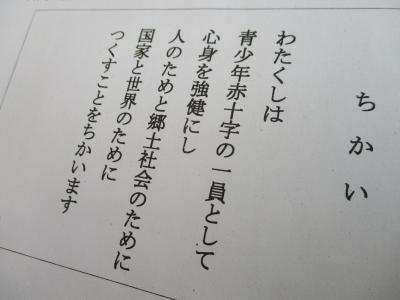 ちかい
わたくしは
青少年赤十字の一員として
心身を強健にし
人のためと郷土社会のために
国家と世界のために
つくすことをちかいます